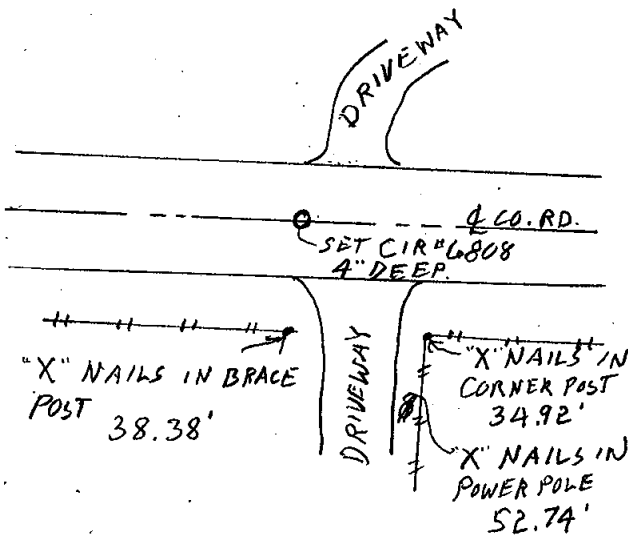 DRIVEWAY
℄ CO. RD.
SET CIR #6808
4" DEEP.
"X" NAILS IN BRACE
POST
38.38'
DRIVEWAY
"X" NAILS IN
CORNER POST
34.92'
"X" NAILS IN
POWER POLE
52.74'